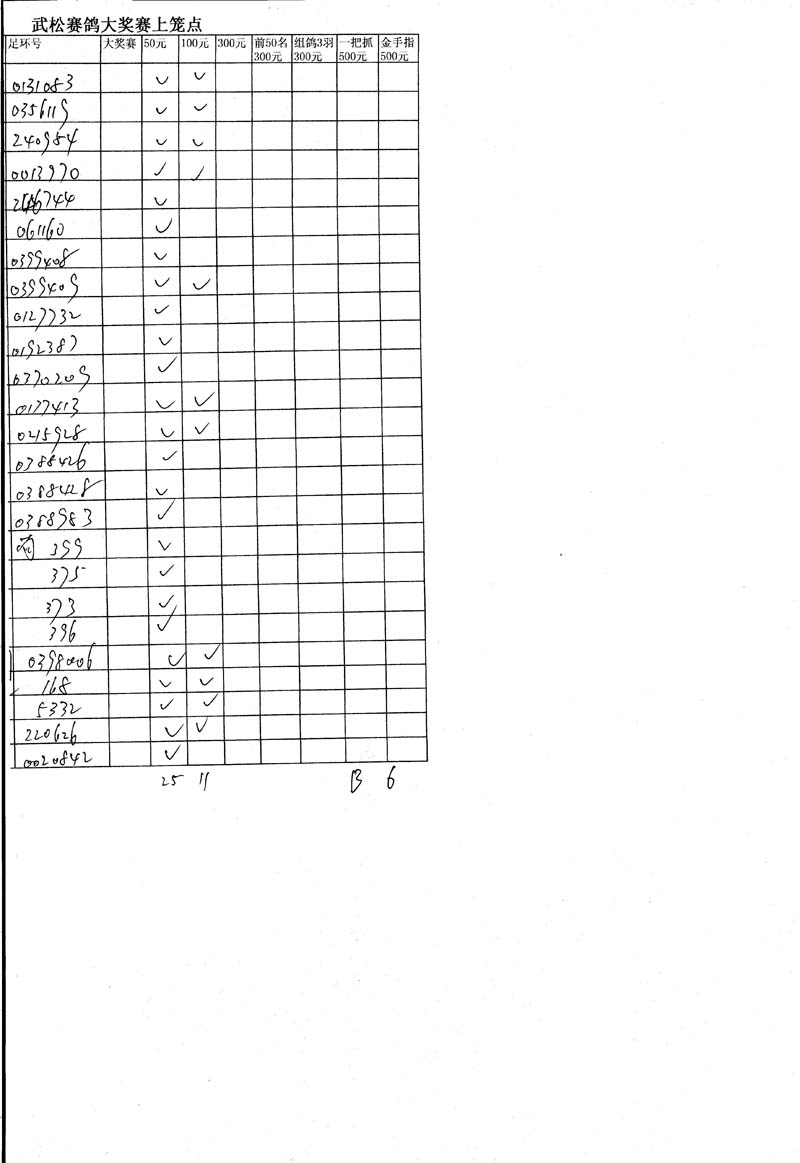 武松赛鸽大奖赛上笼点
足环号 大奖赛 50元 100元 300元 前50名300元 组鸽3羽300元 一把抓500元 金手指500元
0131083 ✓ ✓
0356119 ✓ ✓
240984 ✓ ✓
0013970 ✓ ✓
6744 ✓
061160 ✓
0399408 ✓
0399409 ✓ ✓
0127732 ✓
0192387 ✓
0370209 ✓
0177413 ✓ ✓
0215928 ✓ ✓
0388426 ✓
0388428 ✓
0388983 ✓
399 ✓
375 ✓
373 ✓
396 ✓
0398006 ✓ ✓
168 ✓ ✓
5332 ✓ ✓
220626 ✓ ✓
0020842 ✓
25 11 13 6